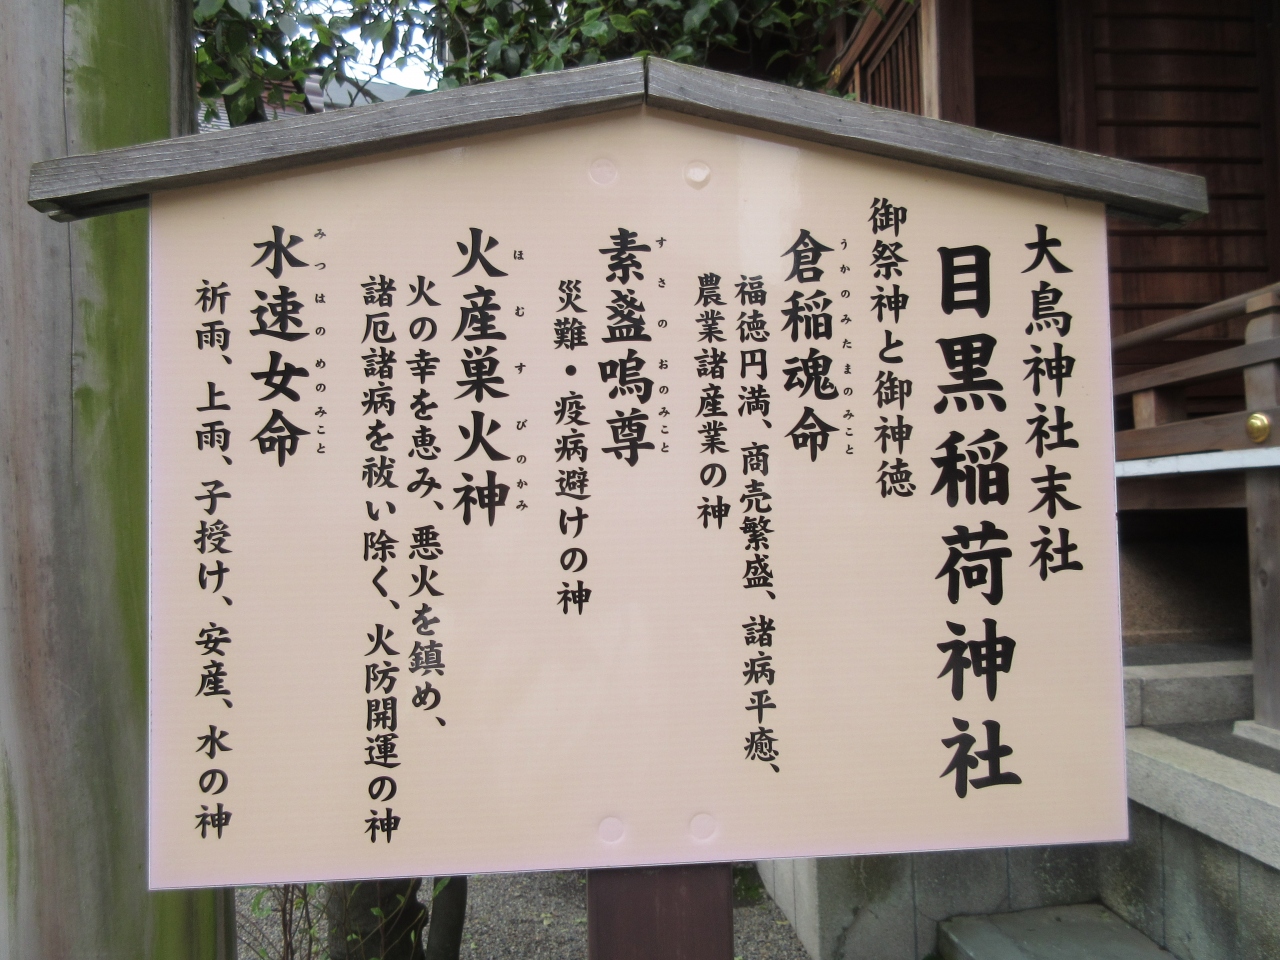 大鳥神社末社
目黒稲荷神社
御祭神と御神徳
倉稲魂命
うかのみたまのみこと
福徳円満、商売繁盛、諸病平癒、
農業諸産業の神
素盞嗚尊
すさのおのみこと
災難・疫病避けの神
火産巣火神
ほむすびのかみ
火の幸を恵み、悪火を鎮め、
諸厄諸病を祓い除く、火防開運の神
水速女命
みつはのめのみこと
祈雨、上雨、子授け、安産、水の神